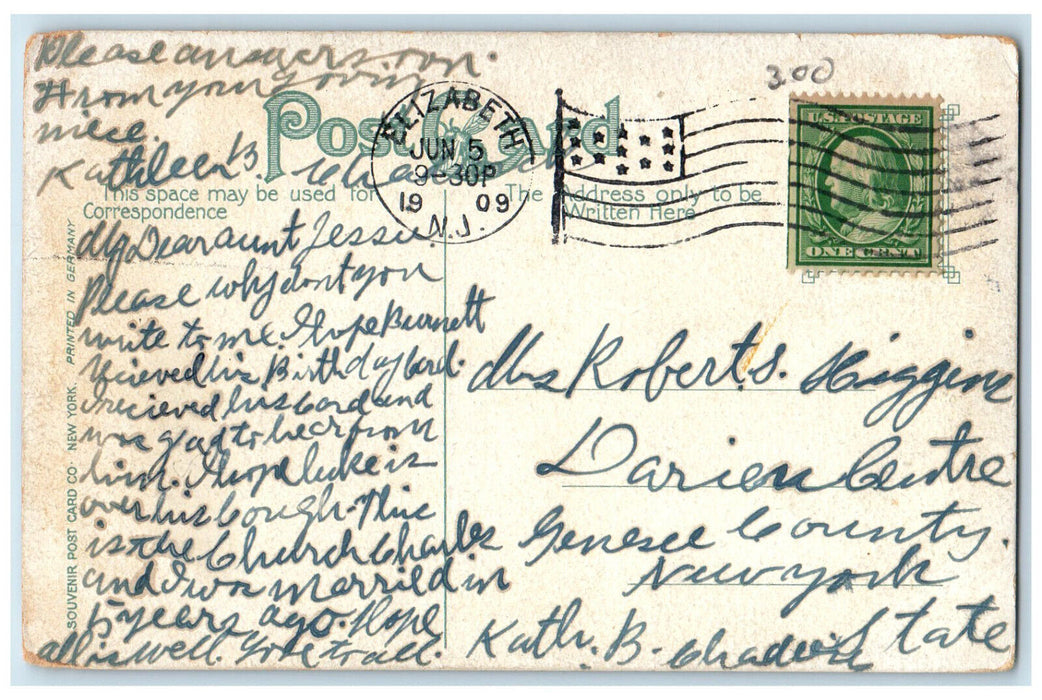 Please answer soon.
From your loving
niece.
Kathleen B. Chadwick
300
Post Card
ELIZABETH
JUN 5
9-30P
1909
N.J.
U.S. POSTAGE
ONE CENT
This space may be used for
Correspondence
The Address only to be
Written Here
My Dear aunt Jessie
Please why dont you
write to me. I hope Burnett
recieved his Birthday Card.
I recieved his card and
was glad to hear from
him. I hope luke is
over his cough. This
is the Church Charles
and I was married in
15 years ago. Hope
all is well. love to all.
Mrs Robert S. Higgins
Darien Centre
Genesee County.
New york
State
Kath. B. Chadwick
SOUVENIR POST CARD CO. NEW YORK PRINTED IN GERMANY